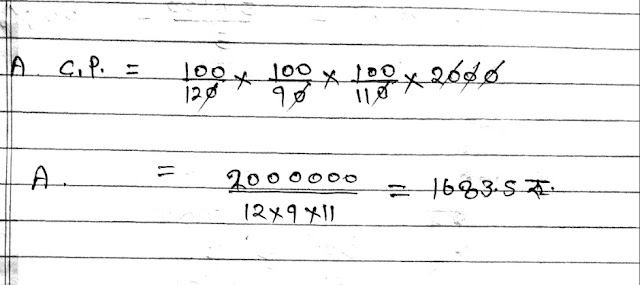 A C.P. = 100/120 × 100/90 × 100/110 × 2000
A. = 2000000/12×9×11 = 1683.5 रु.